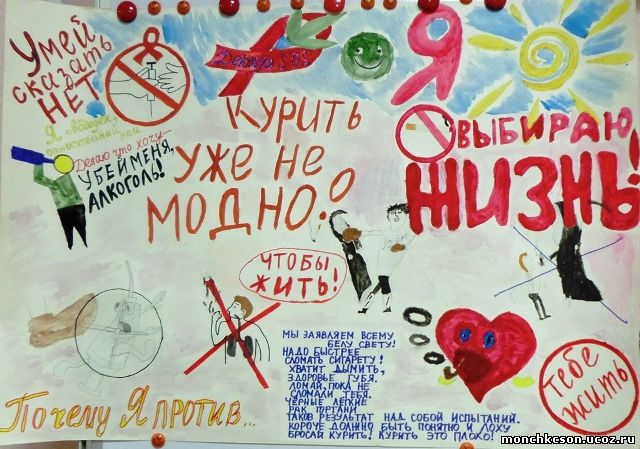 Умей
сказать
НЕТ
Декада SOS
Я
Я свободен,
Делаю что хочу
УБЕЙ МЕНЯ,
АЛКОГОЛЬ!
КУРИТЬ
УЖЕ НЕ
МОДНО!
ВЫБИРАЮ
ЖИЗНЬ!
ЧТОБЫ
ЖИТЬ!
МЫ ЗАЯВЛЯЕМ ВСЕМУ
БЕЛУ СВЕТУ!
НАДО БЫСТРЕЕ
СЛОМАТЬ СИГАРЕТУ!
ХВАТИТ ДЫМИТЬ,
ЗДОРОВЬЕ ГУБЯ.
ЛОМАЙ, ПОКА НЕ
СЛОМАЛИ ТЕБЯ.
ЧЕРНЫЕ ЛЕГКИЕ
РАК ГОРТАНИ
ТАКОВ РЕЗУЛЬТАТ НАД СОБОЙ ИСПЫТАНИЙ.
КОРОЧЕ ДОЛЖНО БЫТЬ ПОНЯТНО И ЛОХУ
БРОСАЙ КУРИТЬ! КУРИТЬ ЭТО ПЛОХО!
ТЕБЕ
ЖИТЬ
Почему Я ПРОТИВ...
monchkcson.ucoz.ru